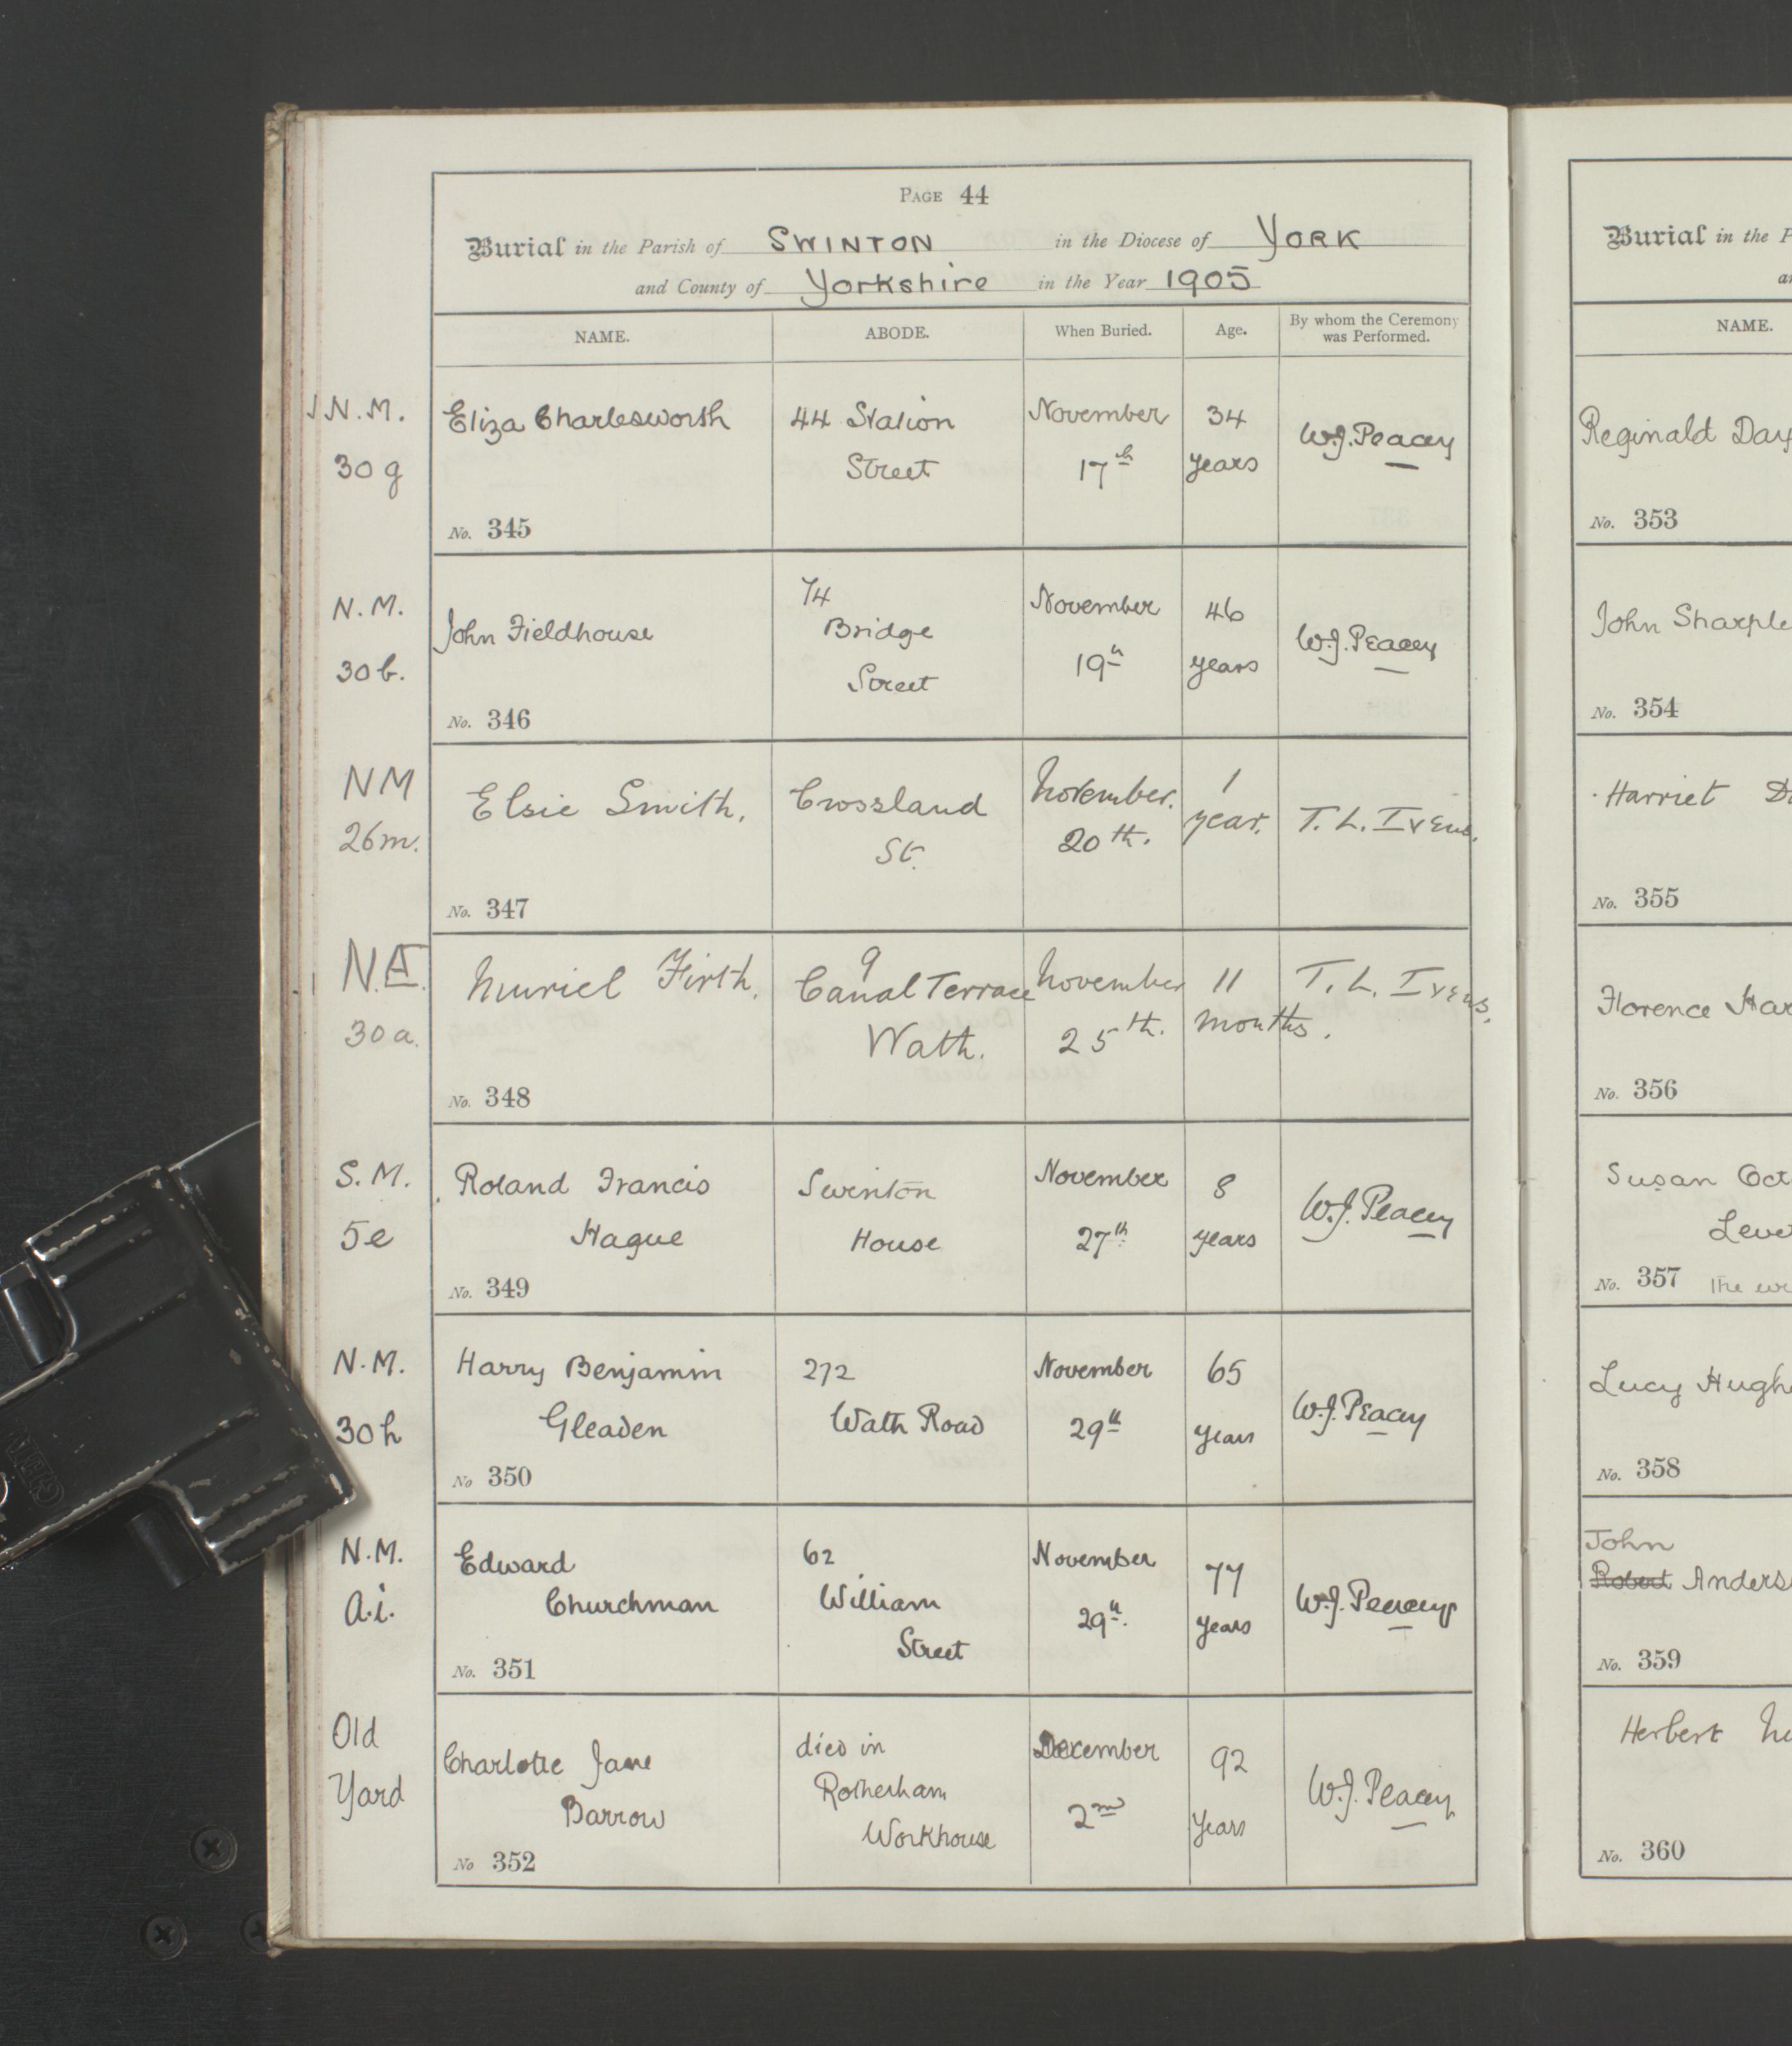 PAGE 44
Burial in the Parish of SWINTON in the Diocese of YORK
and County of Yorkshire in the Year 1905
NAME. ABODE. When Buried. Age. By whom the Ceremony was Performed.
N.M. Eliza Charlesworth 44 Station November 34 W.J. Peacey
30 g Street 17th years
No. 345
N.M. John Fieldhouse 74 November 46 W.J. Peacey
Bridge
30 b. Street 19th years
No. 346
NM Elsie Smith. Crossland November. 1 T. L. Ivens.
26 m. St. 20th. year.
No. 347
N.E. Muriel Firth. 9 November 11 T. L. Ivens.
Canal Terrace
30 a. Wath. 25th. months.
No. 348
S.M. Roland Francis Swinton November 8 W.J. Peacey
5e Hague House 27th years
No. 349
N.M. Harry Benjamin 272 November 65 W.J. Peacey
30 h Gleaden Wath Road 29th years
No 350
N.M. Edward 62 November 77 W.J. Peacey
A.i. Churchman William 29th. years
Street
No. 351
Old Charlotte Jane died in December 92 W.J. Peacey
Yard Barrow Rotherham 2nd years
Workhouse
No 352
Burial in the
NAME.
Reginald
No. 353
John
No. 354
Harriet
No. 355
Florence
No. 356
Susan
No. 357 The
Lucy
No. 358
John
Robert
No. 359
Herbert
No. 360